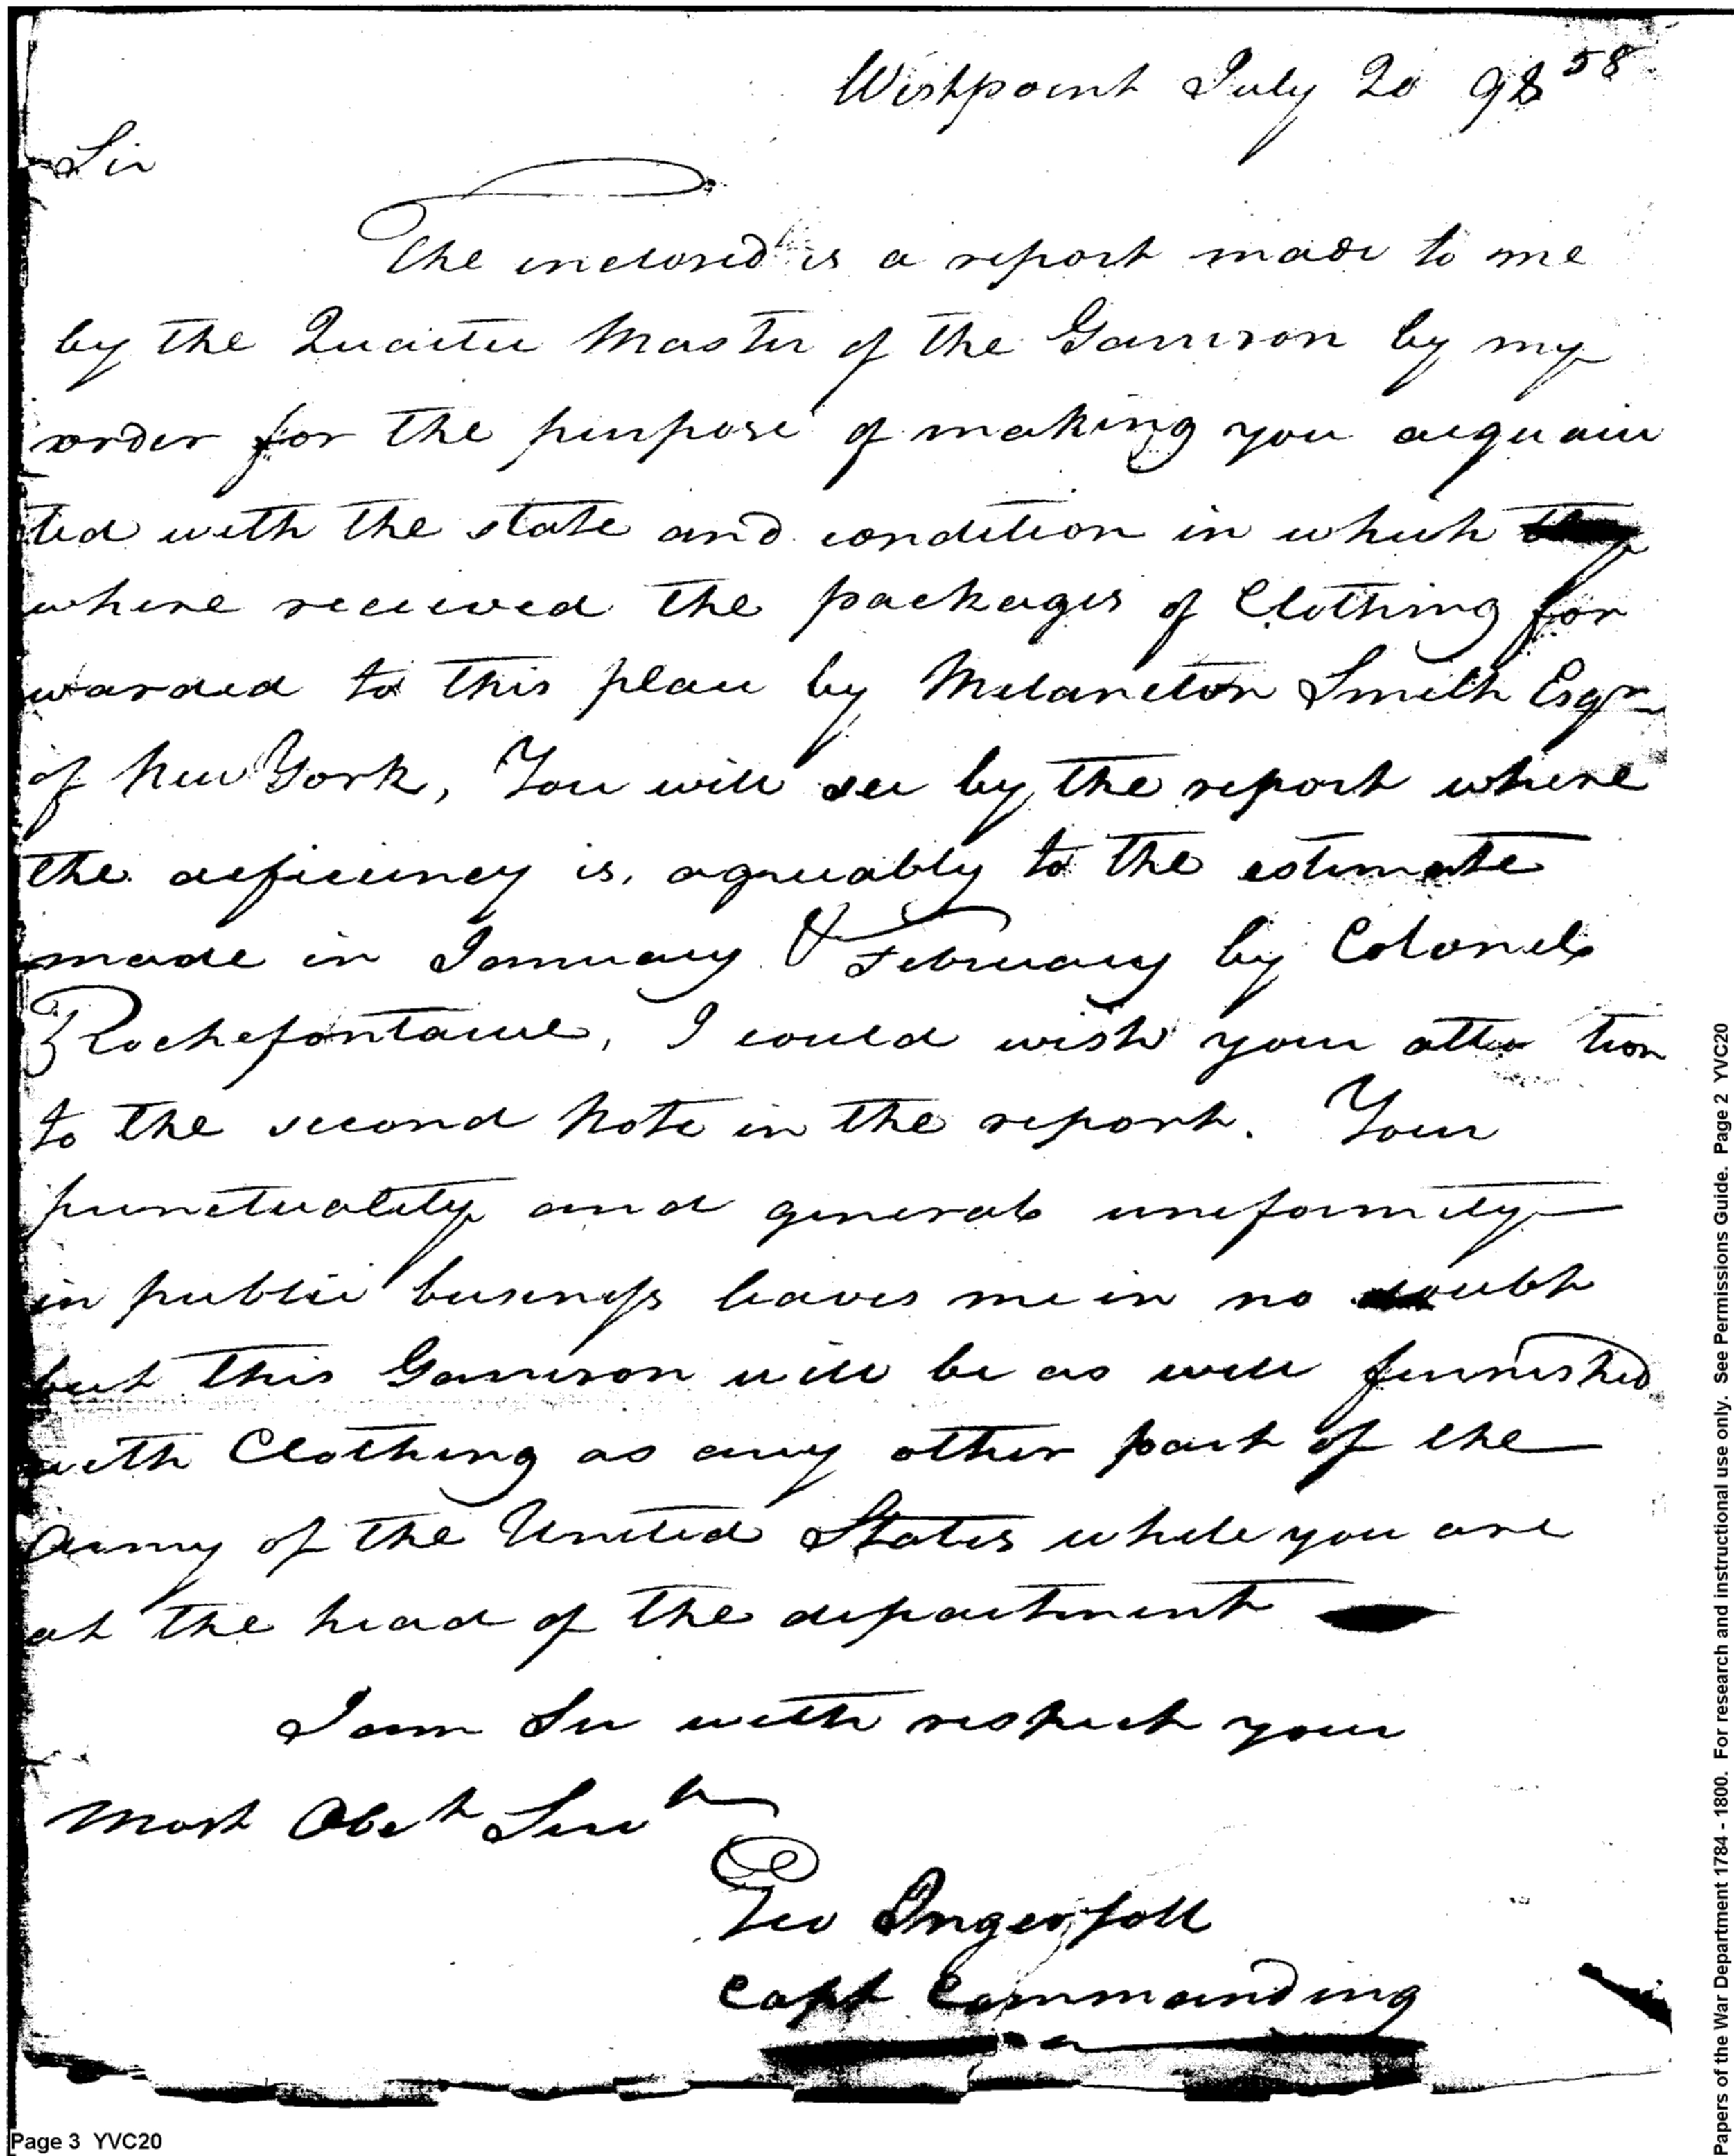 Westpoint July 20 98 58
Sir
The inclosed is a report made to me
by the Quarter Master of the Garrison by my
order for the purpose of making you acquain
ted with the state and condition in which
where received the packages of Clothing for
warded to this place by Melancton Smith Esqr
of New York, You will see by the report where
the deficiency is, agreeably to the estimate
made in January & February by Colonel
Rochefontaine, I could wish your atte tion
to the second Note in the report. Your
punctuality and general uniformity
in public business leaves me in no doubt
but this Garrison will be as well furnished
with Clothing as any other part of the
Army of the United States while you are
at the head of the department
I am Sir with respect your
most Obet Servt
Geo Ingersoll
Capt Commanding
Page 3 YVC20
Papers of the War Department 1784 - 1800. For research and instructional use only. See Permissions Guide. Page 2 YVC20